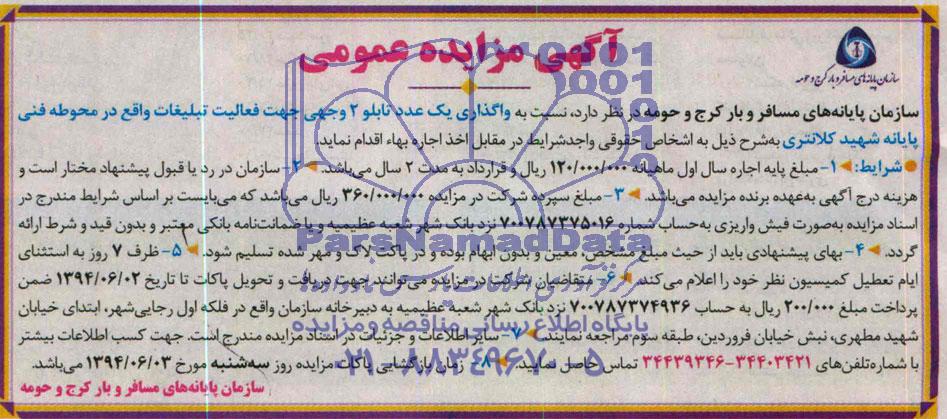 آگهی مزایده عمومی
سازمان پایانه‌های مسافر و بار کرج و حومه
سازمان پایانه‌های مسافر و بار کرج و حومه در نظر دارد، نسبت به واگذاری یک عدد تابلو ۲ وجهی جهت فعالیت تبلیغات واقع در محوطه فنی
پایانه شهید کلانتری به‌شرح ذیل به اشخاص حقوقی واجدشرایط در مقابل اخذ اجاره بهاء اقدام نماید.
شرایط: ۱- مبلغ پایه اجاره سال اول ماهیانه ۱۲۰/۰۰۰/۰۰۰ ریال و قرارداد به مدت ۲ سال می‌باشد. ۲- سازمان در رد یا قبول پیشنهاد مختار است و
هزینه درج آگهی به‌عهده برنده مزایده می‌باشد. ۳- مبلغ سپرده شرکت در مزایده ۳۶۰/۰۰۰/۰۰۰ ریال می‌باشد که می‌بایست بر اساس شرایط مندرج در
اسناد مزایده به‌صورت فیش واریزی به‌حساب شماره ۷۰۰۷۸۷۳۷۵۰۱۶ نزد بانک شهر شعبه عظیمیه و یا ضمانت‌نامه بانکی معتبر و بدون قید و شرط ارائه
گردد. ۴- بهای پیشنهادی باید از حیث مبلغ مشخص، معین و بدون ابهام بوده و در پاکت لاک و مهر شده تسلیم شود. ۵- ظرف ۷ روز به استثنای
ایام تعطیل کمیسیون نظر خود را اعلام می‌کند. ۶- متقاضیان شرکت در مزایده می‌توانند جهت دریافت و تحویل پاکات تا تاریخ ۱۳۹۴/۰۶/۰۲ ضمن
پرداخت مبلغ ۲۰۰/۰۰۰ ریال به حساب ۷۰۰۷۸۷۳۷۴۹۳۶ نزد بانک شهر شعبه عظیمیه به دبیرخانه سازمان واقع در فلکه اول رجایی‌شهر، ابتدای خیابان
شهید مطهری، نبش خیابان فروردین، طبقه سوم مراجعه نمایند. ۷- سایر اطلاعات و جزئیات در اسناد مزایده مندرج است. جهت کسب اطلاعات بیشتر
با شماره‌تلفن‌های ۳۴۴۰۳۴۲۱-۳۴۴۳۹۳۴۶ تماس حاصل نمایید. ۸- زمان بازگشایی پاکات مزایده روز سه‌شنبه مورخ ۱۳۹۴/۰۶/۰۳ می‌باشد.
سازمان پایانه‌های مسافر و بار کرج و حومه
ParsNamadData
پایگاه اطلاع رسانی مناقصه و مزایده
۰۲۱-۸۸۳۴۹۶۷۰-۵